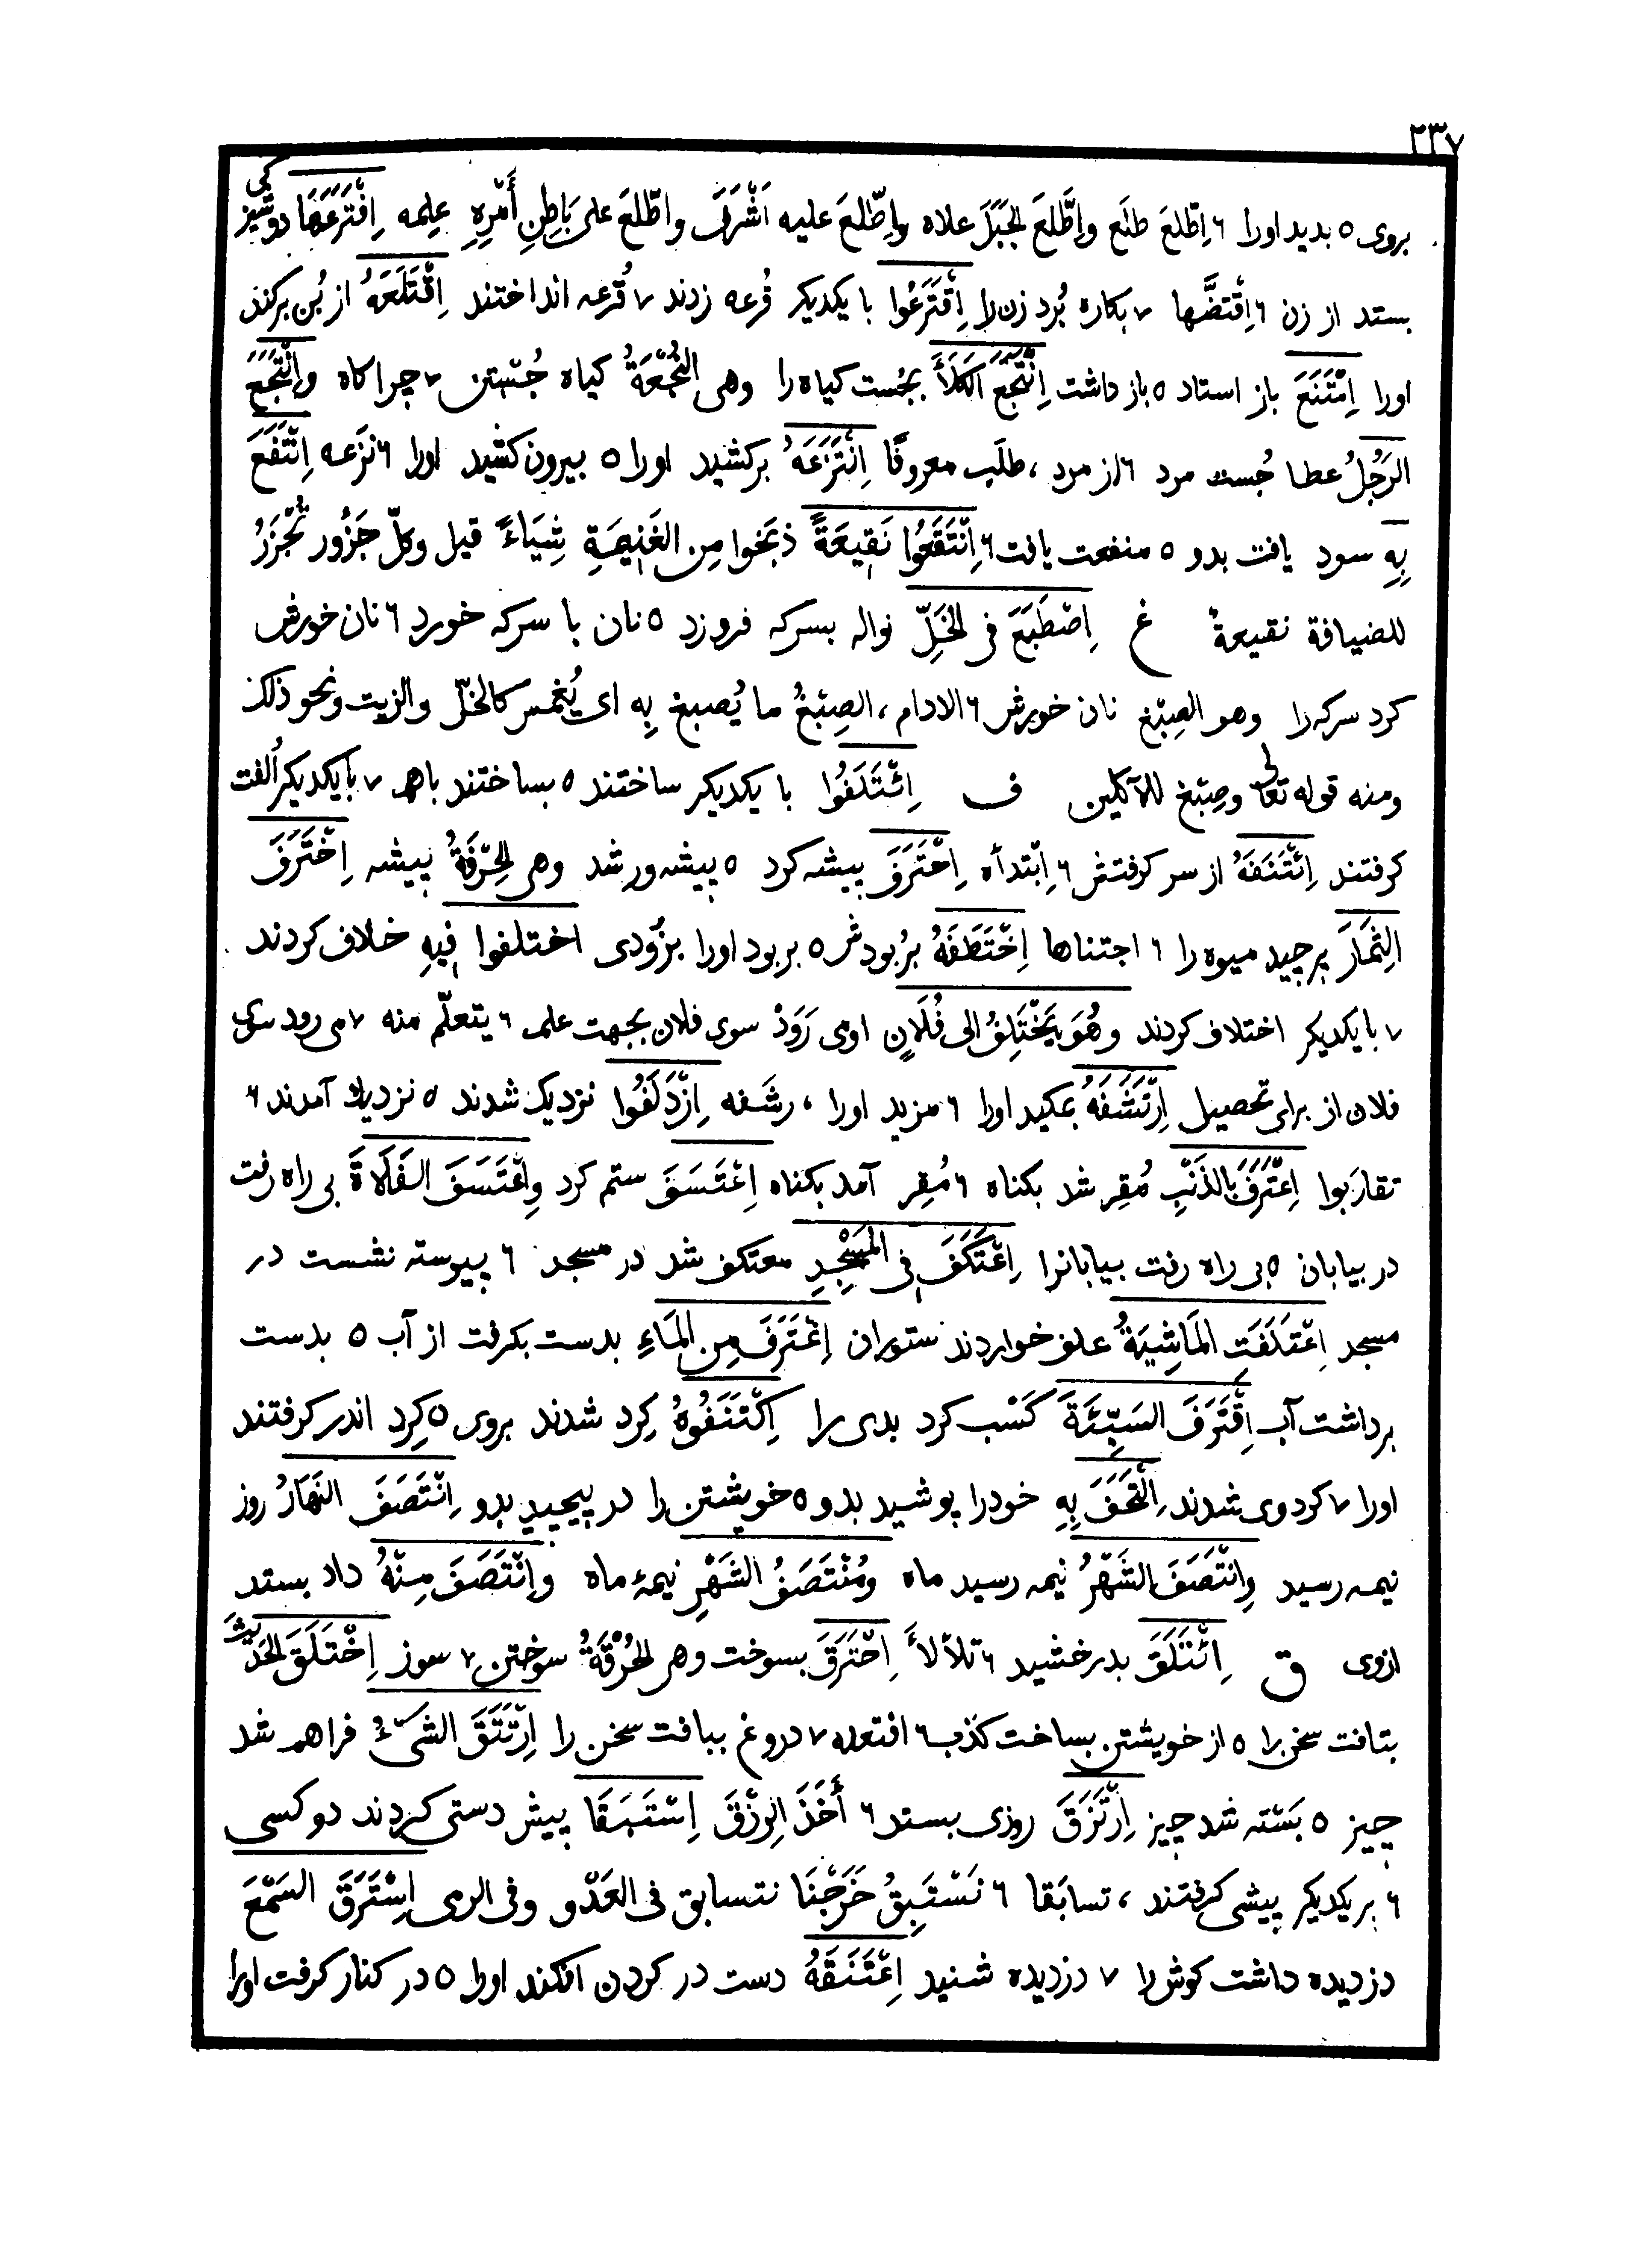 ٢٣٧
بروی ٥ بدید اورا ٦ اِطَّلعَ طلَع واِطَّلَعَ الجَبَلَ علاه واِطّلعَ علیه اَشْرَفَ واطّلعَ علی بَاطِنِ أَمْرِهِ علِمه اِفْتَرَعَهَا دوشیزکی
بستد از زن ٦ اِقْتضَّها ٧ بکاره بُرد زن را اِقْتَرَعُوا با یکدیکر قُرعه زدند ٧ قُرعه انداختند اِقْتَلَعَهُ از بُن برکند
اورا اِمْتَنَعَ باز استاد ٥ باز داشت اِنْتَجَعَ الکَلَأَ بجُست کیاه را وهی النُجْعَةُ کیاه جُسْتن ٧ چراکاه واِنْتَجَعَ
الرَجُلُ عطا جُست مرد ٦ از مرد ، طلَب معروفًا اِنْتَزَعَهُ برکشید اورا ٥ بیرون کشید اورا ٦ نَزَعه اِنْتَفَعَ
بِهِ سود یافت بدو ٥ منفعت یافت ٦ اِنْتَقَعُوا نَقِیعَةً ذبَحوا مِن الغَنِیمَةِ شِیَاءً قیل وکلّ جَزُور تُجْزَرُ
للضیافة نقیعةٌ غ اِصْطَبَغَ فی الخَلِّ نواله بسرکه فرو زد ٥ نان با سرکه خورد ٦ نان خورش
کرد سرکه را وهو الصِبْغ نان خورش ٦ الادام ، الصِبْغُ ما یُصبغ بِه ای یُغمس کالخلّ والزیت ونحو ذلک
ومنه قوله تعالی وصِبْغ للآکلین ف اِئْتَلَفُوا با یکدیکر ساختند ٥ بساختند باهم ٧ بایکدیکر اُلفت
کرفتند اِئْتَنَفَهُ از سر کرفتش ٦ اِبْتدأه اِحْتَرَفَ پیشه کرد ٥ پیشه ور شد وهی الحِرْفَةُ پیشه اِخْتَرَفَ
الثِمَارَ برچید میوه را ٦ اجتناها اِخْتَطَفَهُ برُبودش ٥ بربود اورا بزُودی اختلفوا فِیهِ خلاف کردند
٧ بایکدیکر اختلاف کردند وهُوَ یَخْتَلِفُ الی فُلَانٍ او می رَوَدْ سوی فلان بجهت علم ٦ یتعلّم منه ٧ می رود سوی
فلان از برای تحصیل اِرْتَشَفَهُ بمکید اورا ٦ مزید اورا ، رشَفه اِزْدَلَفُوا نزدیک شدند ٥ نزدیک آمدند ٦
تقارَبوا اِعْتَرَفَ بالذَنْبِ مُقِر شد بکناه ٦ مُقِر آمد بکناه اِعْتَسَفَ ستم کرد واِعْتَسَفَ الفَلَاةَ بی راه رفت
در بیابان ٥ بی راه رفت بیابانرا اِعْتَکَفَ فی المَسْجِدِ معتکف شد در مسجد ٦ پیوسته نشست در
مسجد اِعْتَلَفَتِ المَاشِیَةُ علف خواردند ستوران اِغْتَرَفَ مِن المَاءِ بدست بکرفت از آب ٥ بدست
برداشت آب اِقْتَرَفَ السَیِّئَةَ کَسْب کرد بدی را اِکْتَنَفُوهُ کِرد شدند بروی ٥ کِرد اندر کرفتند
اورا ٧ کرد وی شدند اِلْتَحَفَ بِهِ خودرا پوشید بدو ٥ خویشتن را در پیچید بدو اِنْتَصَفَ النَهَارُ روز
نیمه رسید واِنْتَصَفَ الشَهْرُ نیمه رسید ماه ومُنْتَصَفُ الشَهْرِ نیمهٔ ماه واِنْتَصَفَ مِنْهُ داد بستد
ازوی ق اِئْتَلَقَ بدرخشید ٦ تلألأ اِحْتَرَقَ بسوخت وهی الحُرْقَةُ سوختن ٧ سوز اِخْتَلَقَ الحَدِیثَ
بتافت سخن را ٥ از خویشتن بساخت کذب ٦ افتعله ٧ دروغ ببافت سخن را اِرْتَتَقَ الشَیْءُ فراهم شد
چیز ٥ بَسْته شد چیز اِرْتَزَقَ روزی بستد ٦ أَخَذَ الرِزْقَ اِسْتَبَقَا پیش دستی کردند دو کسی
٦ بر یکدیکر پیشی کرفتند ، تسابَقا ٦ نَسْتَبِقُ خَرَجْنَا نتسابق فی العَدْو وفی الرمی اِسْتَرَقَ السَمْعَ
دزدیده داشت کوش را ٧ دزدیده شنید اِعْتَنَقَهُ دست در کردن افکند اورا ٥ در کنار کرفت اورا